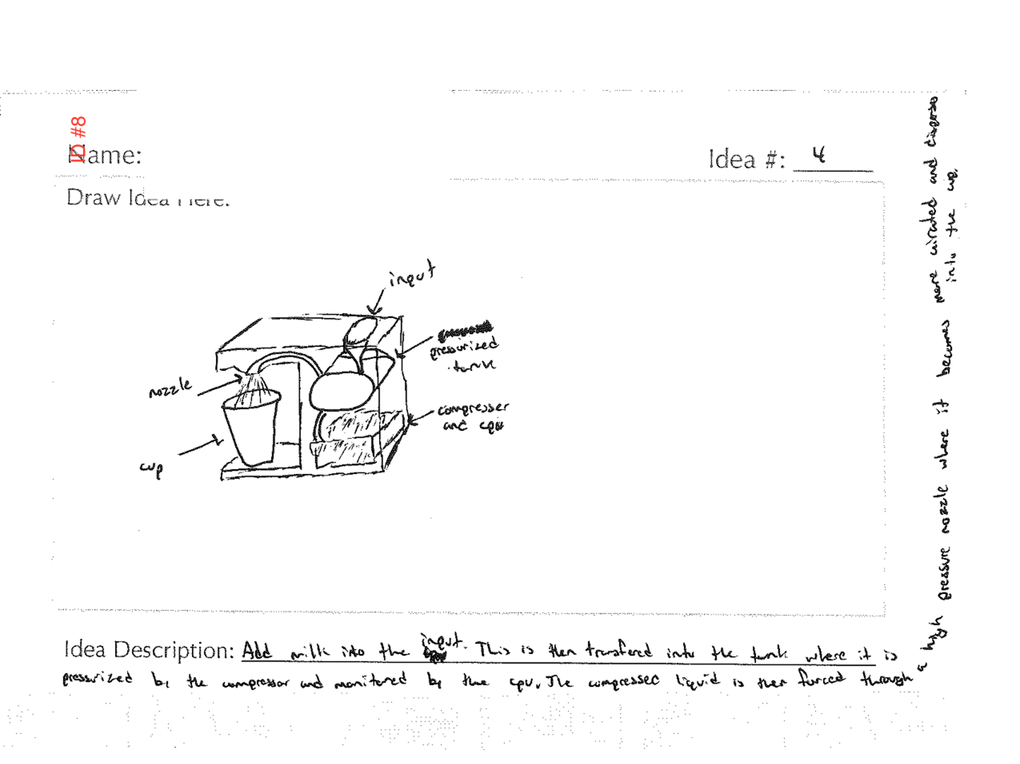 ID #8
Name:
Idea #: 4
Draw Idea Here:
input
pressurized
tank
nozzle
compresser
and cpu
cup
Idea Description: Add milk into the input. This is then transfered into the tank where it is
pressurized by the compressor and monitored by the cpu. The compressed liquid is then forced through
a high pressure nozzle where it becomes more airated and disperses
into the cup.